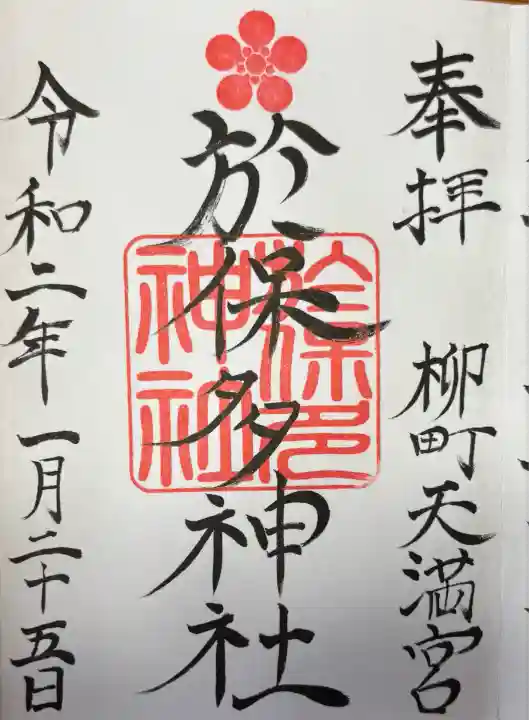 奉拝 柳町天満宮
於保多神社
令和二年一月二十五日